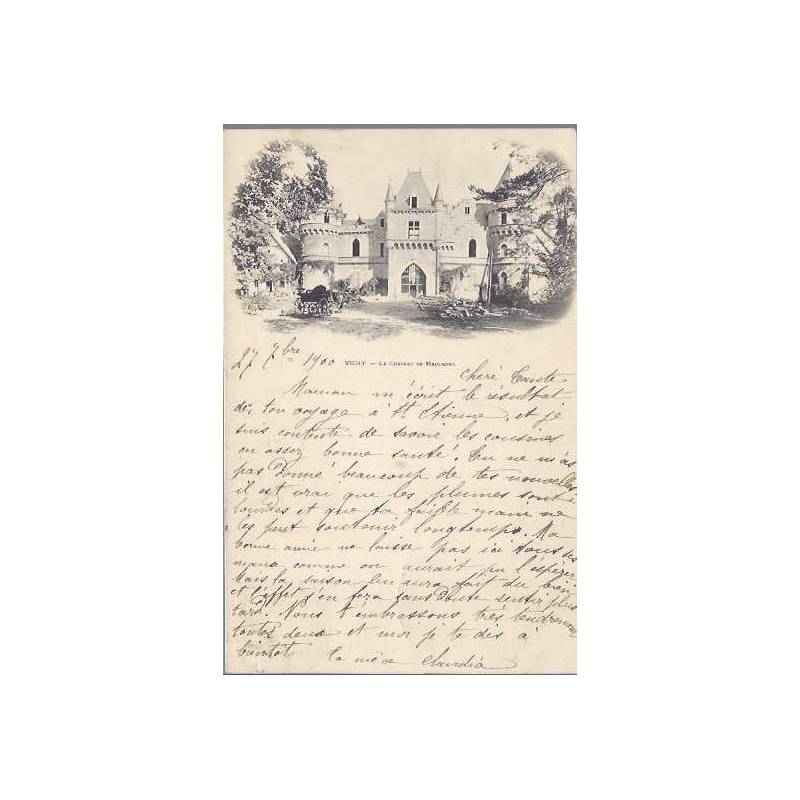 27 7bre 1900 VICHY. — LE CHATEAU DE MAUMONT.
Chère Tante
Maman m'écrit le résultat
de ton voyage à St Etienne, et je
suis contente de savoir les cousines
en assez bonne santé. Tu ne m'as
pas donné beaucoup de tes nouvelles
il est vrai que les plumes sont
lourdes et que ta faible main ne
les peut soutenir longtemps. Ma
bonne amie ne laisse pas ici tous ses
maux comme on aurait pu l'espérer.
Mais la saison lui aura fait du bien
et l'effet s'en fera sans doute sentir plus
tard. Nous t'embrassons très tendrement
toutes deux et moi je te dis à
bientôt ta nièce Claudia